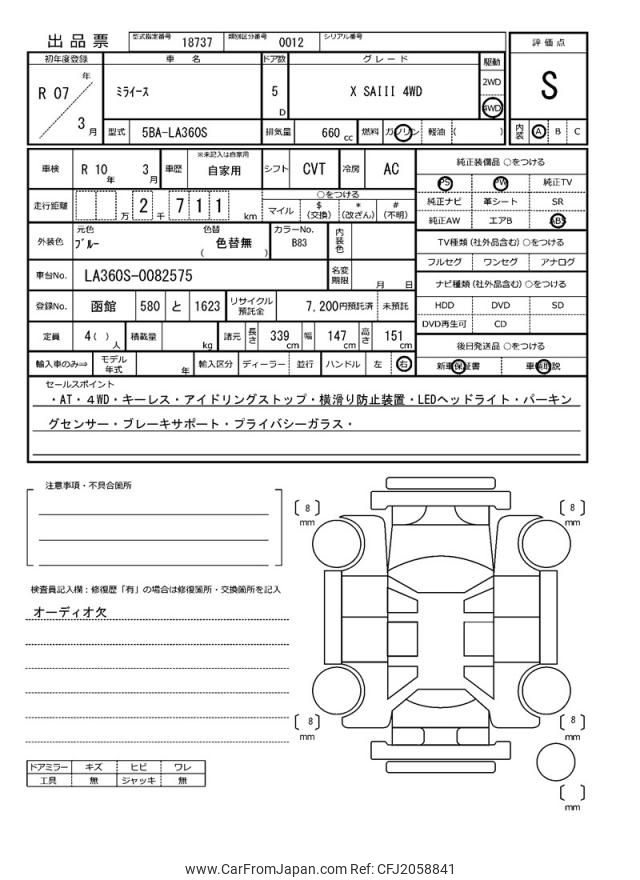 出品票 型式指定番号 18737 類別区分番号 0012 シリアル番号
評価点
S
内装 A B C
初年度登録 車名 ドア数 グレード 駆動
R 07 年 3 月 ミライース 5 D X SAIII 4WD 2WD 4WD
型式 5BA-LA360S 排気量 660 cc 燃料 ガソリン 軽油 ( )
車検 R 10 年 3 月 車歴 ※未記入は自家用 自家用 シフト CVT 冷房 AC
走行距離 万 2 千 7 1 1 km ○をつける
マイル $(交換) *(改ざん) #(不明)
外装色 元色 ブルー 色替 ( 色替無 ) カラーNo. B83 内装色
車台No. LA360S-0082575 名変期限 月 日
登録No. 函館 580 と 1623 リサイクル預託金 7,200円預託済 未預託
定員 4( ) 人 積載量 kg 諸元 長さ 339 cm 幅 147 cm 高さ 151 cm
輸入車のみ⇒ モデル年式 年 輸入区分 ディーラー 並行 ハンドル 左 右
純正装備品 ○をつける
PS PW 純正TV
純正ナビ 革シート SR
純正AW エアB ABS
TV種類 (社外品含む) ○をつける
フルセグ ワンセグ アナログ
ナビ種類 (社外品含む) ○をつける
HDD DVD SD
DVD再生可 CD
後日発送品 ○をつける
新車保証書 車輌取説
セールスポイント
・AT・4WD・キーレス・アイドリングストップ・横滑り防止装置・LEDヘッドライト・パーキン
グセンサー・ブレーキサポート・プライバシーガラス・
注意事項・不具合箇所
検査員記入欄：修復歴「有」の場合は修復箇所・交換箇所を記入
オーディオ欠
ドアミラー キズ ヒビ ワレ
工具 無 ジャッキ 無
8 mm
8 mm
8 mm
8 mm
mm
www.CarFromJapan.com Ref: CFJ2058841